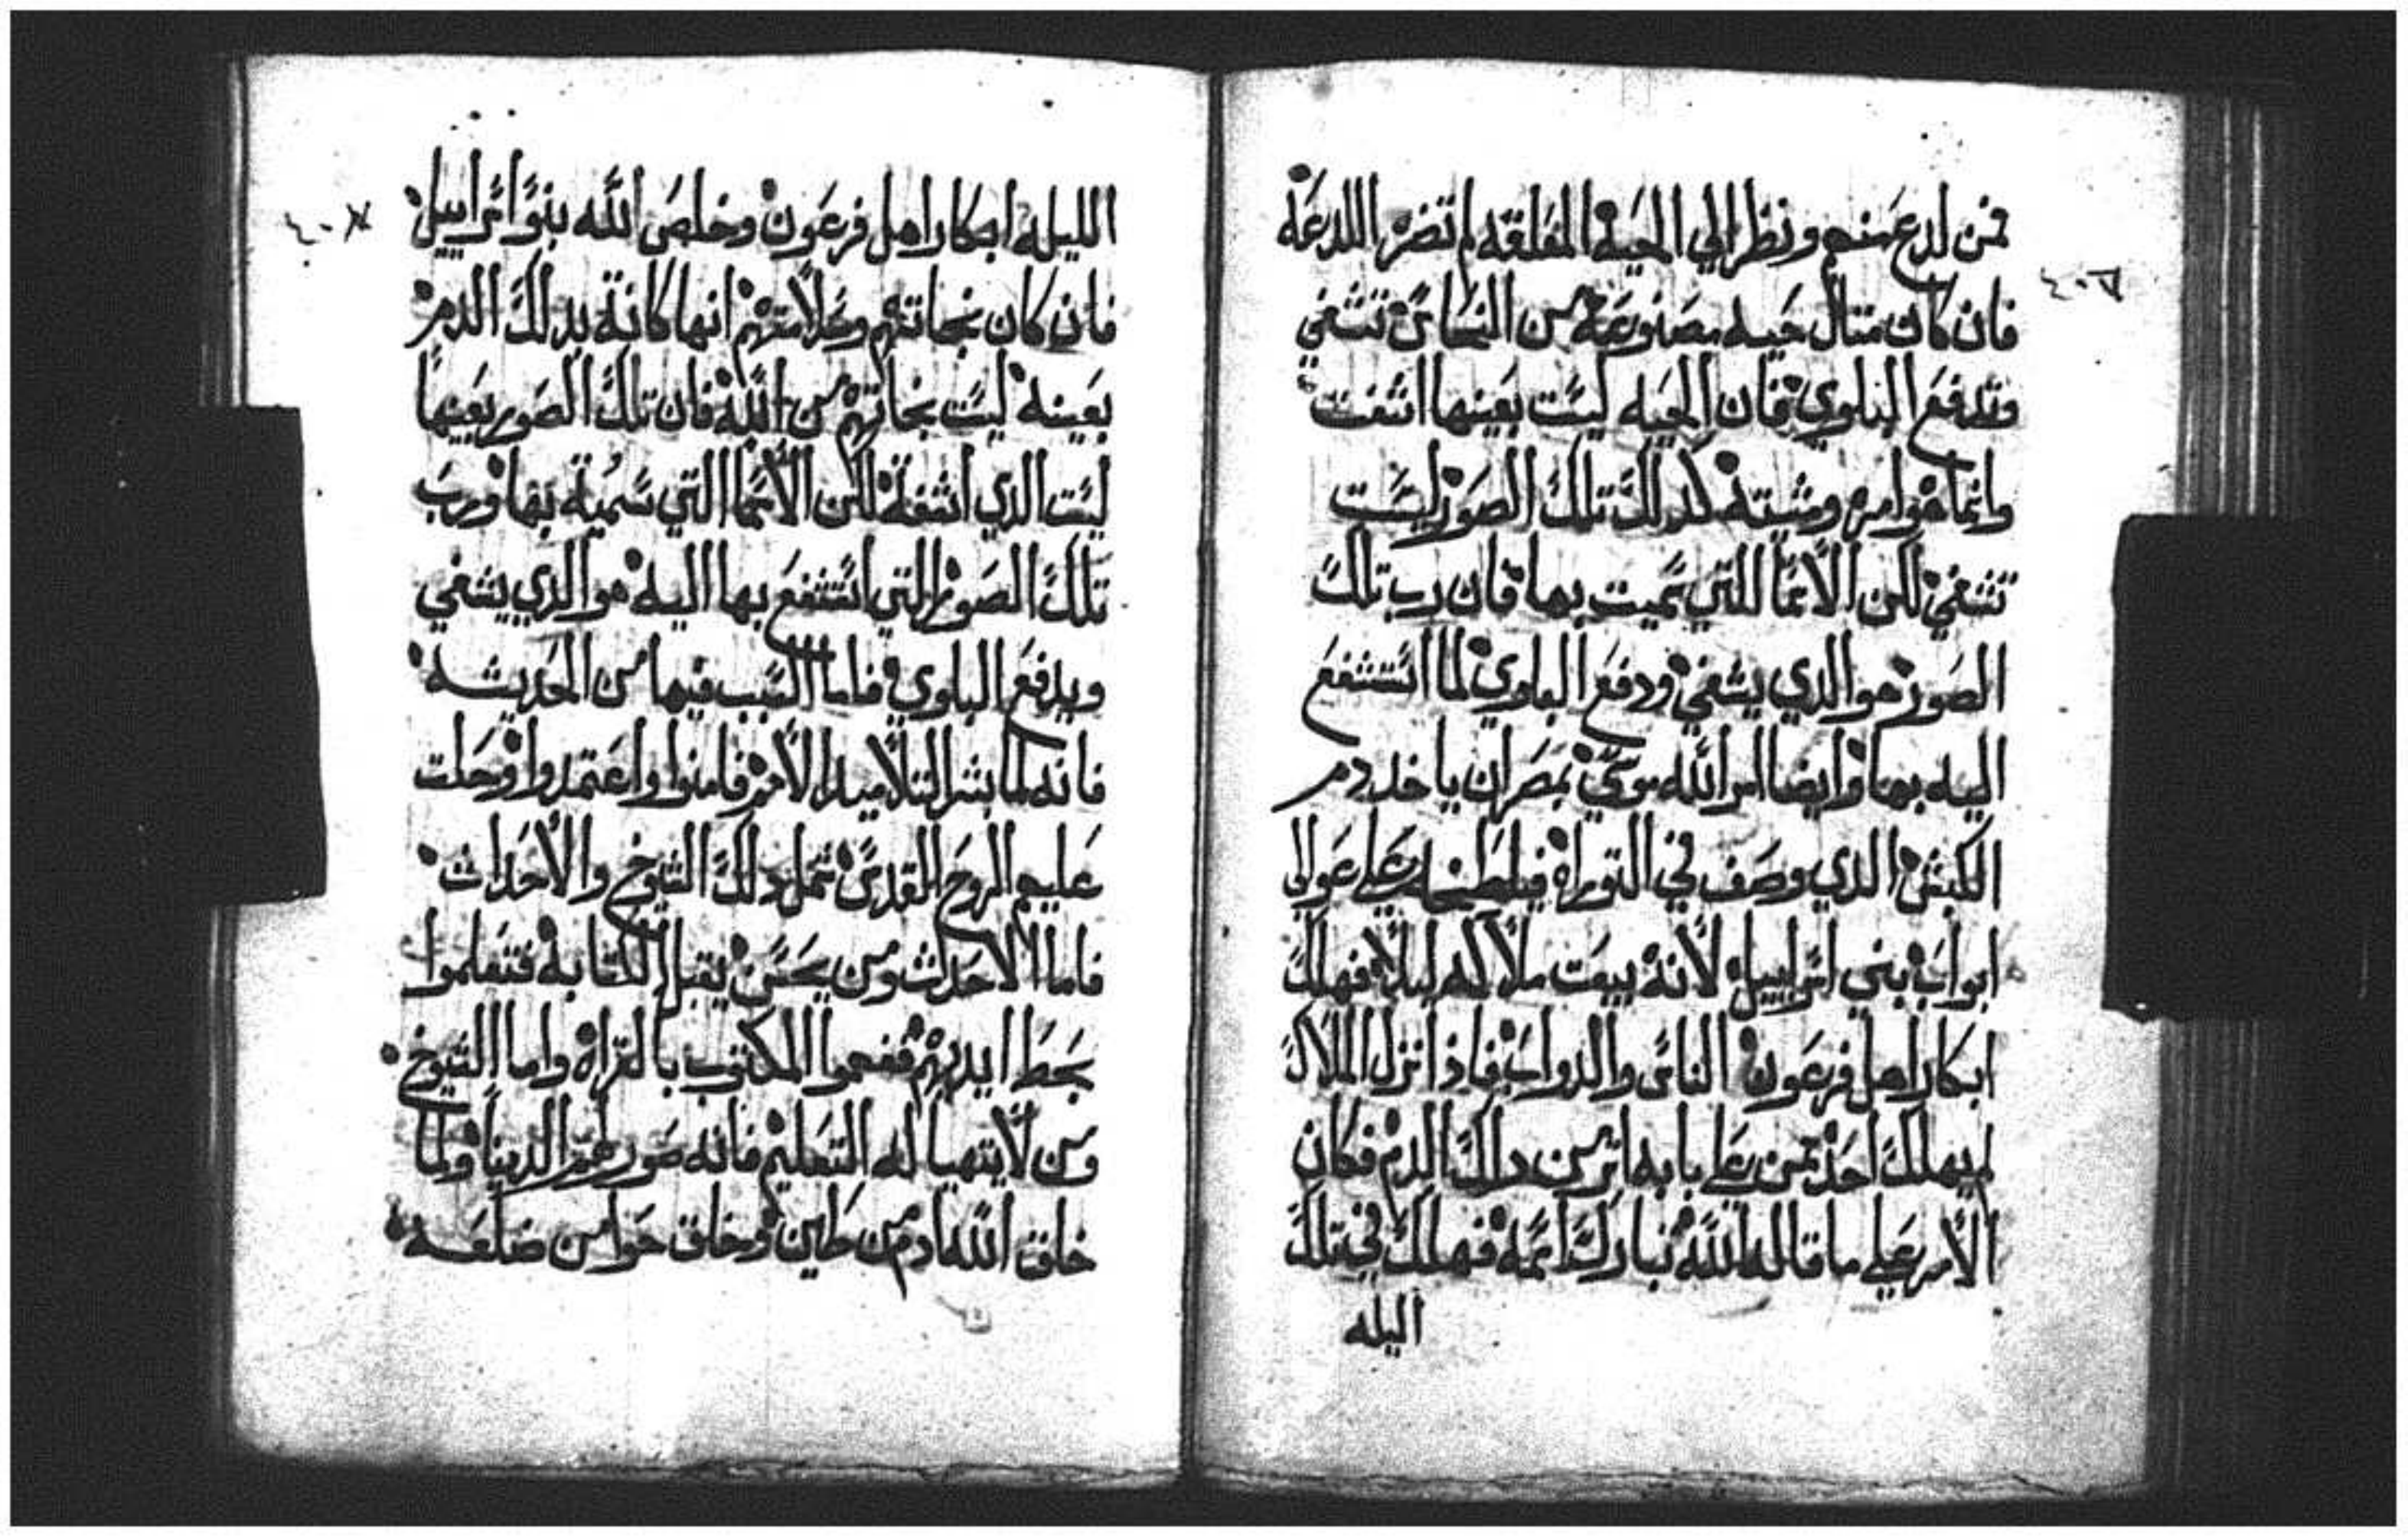 فمن لدع منهم ونظر الي الحية المعلقه لم تضره اللدعة
فان كان متال حيه مصنوعة من النحاس تشفي
وتدفع البلوي فان الحيه ليست بعينها اشفت
وانما هو امره ومشيته كدلك تلك الصور ليست
تشفي لكن الاسما اللتي سميت بها فان رب تلك
الصور هو الدي يشفي ودفع البلوي لما استشفع
اليه بها وايضا امر الله موسي بمصر ان ياخد دم
الكبش الدي وصف في التوراة فيلطخه علي عوالي
ابواب بني اسراييل لأنه يبعت ملاكه ليلا فهلك
ابكار اهل فرعون الناس والدواب فاذا نزل الملاك
لم يهلك احد ممن علي بابه اتر من دالك الدم فكان
الأمر علي ما قاله الله تبارك اسمه فهلك في تلك
اليله
الليله ابكار اهل فرعون وخلص الله بنو اسراييل
فان كان نجاتهم وسلامتهم انها كانة بدلك الدم
بعينه ليست نجاتهم من الله فان تلك الصور بعينها
ليست الدي اشفة لكن الأسما التي سمية بها ورب
تلك الصور التي استشفع بها اليه هو الدي يشفي
ويدفع البلوي فاما السبب فيها من الحديثه
فانه لما بشر التلاميد الأمم فامنوا واعتمدوا وحلت
عليهم الروح القدس شمل دلك الشيوخ والأحداث
فاما الاحداث ومن يحسن يقبل الكتابة فتعلموا
بخط ايديهم ففهموا المكتوب بالقراة واما الشيوخ
ومن لا يتهيا له التعليم فانه صور لهم الدينا ولما
خلق الله ادم من طين وخلق حوا من ضلعه